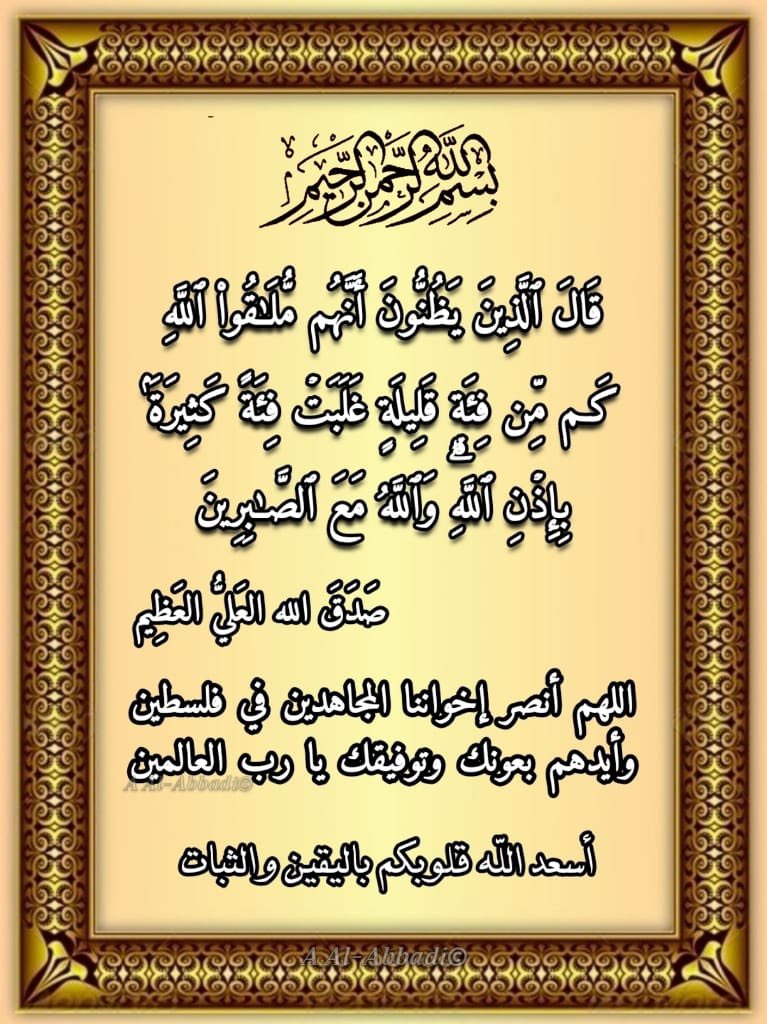 بِسْمِ اللَّهِ الرَّحْمَنِ الرَّحِيمِ
قَالَ ٱلَّذِينَ يَظُنُّونَ أَنَّهُم مُّلَٰقُوا۟ ٱللَّهِ
كَم مِّن فِئَةٍ قَلِيلَةٍ غَلَبَتْ فِئَةً كَثِيرَةَۢ
بِإِذْنِ ٱللَّهِۗ وَٱللَّهُ مَعَ ٱلصَّٰبِرِينَ
صَدَقَ الله العَليُّ العَظِيم
اللهم أنصر إخواننا المجاهدين في فلسطين
وأيدهم بعونك وتوفيقك يا رب العالمين
A Al-Abbadi©
أسعد اللّه قلوبكم باليقين والثبات
A Al-Abbadi©